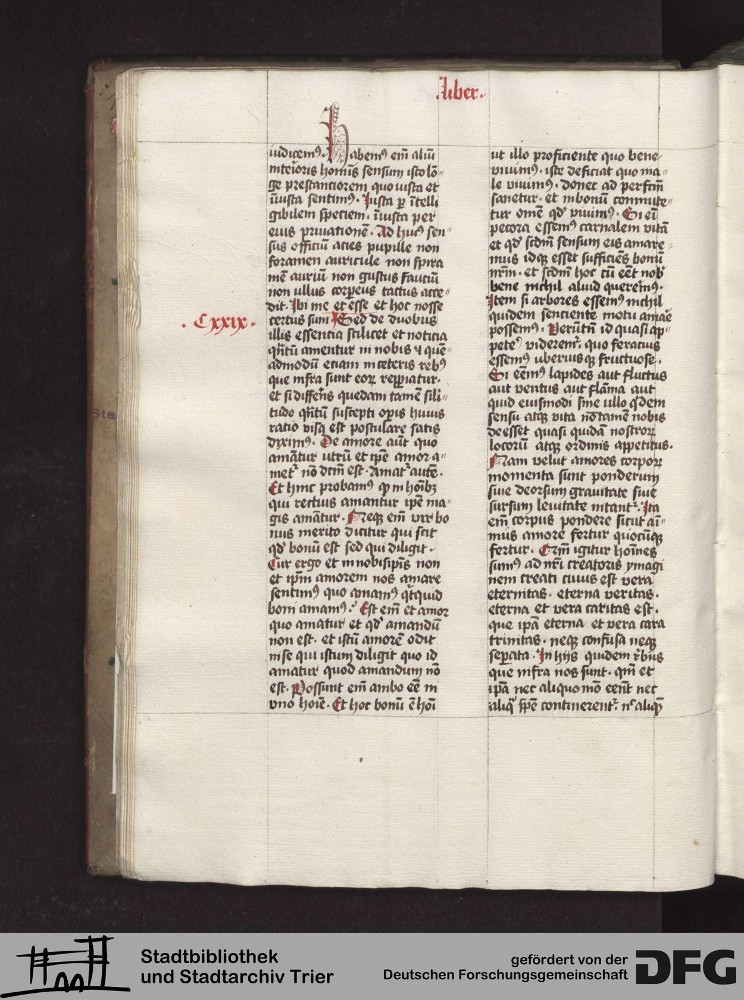 Liber.
iudicemꝰ. Habemꝰ em̄ aliū
interioris hominis sensum isto lō-
ge prestanciorem quo iusta et
iniusta sentimꝰ. Iusta ꝑ ītelli
gibilem speciem. iniusta per
eius priuationē. Ad huiꝰ sen-
sus officiū acies pupille non
foramen auricule non spira
mē auriū non gustus fauciū
non ullus corpeus tactus acce-
dit. Ibi me et esse et hoc nosse
. Cxxix.
certus sum Sed de duobus
illis essentia scilicet et noticia
qn̄tū amentur in nobis ⁊ quē-
admodū etiam in ceteris rebꝰ
que infra sunt eoꝝ repiatur.
et si differēs quedam tamē sili-
tudo qn̄tū suscepti opis huius
ratio visa est postulare satis
dyximꝰ. De amore aūt quo
amātur utrū et ipē amor a-
met᷑ nō dcm̄ est. Amat᷑ autē.
Et hinc probamꝰ ꝙ in hoībꝫ
qui rectius amantur ipē ma-
gis amātur. Neqꝫ em̄ vir bo
nus merito dicitur qui scit
qd̛ bonū est sed qui diligit.
Cur ergo et in nobisipīs non
et ipm̄ amorem nos amare
sentimꝰ quo amamꝰ qͥtquid
boni amamꝰ. Est em̄ et amor
quo amatur et qd̛ amandū
non est. et istū amorē odit
in se qui istum diligit quo id
amatur quod amandum nō
est. Possunt em̄ ambo eē in
vno hoīe. Et hoc bonū ē hoī
ut illo proficiente quo bene
viuimꝰ. iste deficiat quo ma-
le viuimꝰ. donec ad perfctm̄
sanetur. et in bonū commute-
tur omē qd̛ viuimꝰ. Si em̄
pecora essemꝰ carnalem vitā
et qd̛ scdm̄ sensum eiꝰ amare-
mus idqꝫ esset sufficiēs bonū
nr̄m. et scdm̄ hoc cū eēt nob̄
bene nichil aliud queremꝰ.
Item si arbores essemꝰ nichil
quidem sentiente motu amāe
possemꝰ. Verūtn̄ id quasi ap-
pete᷑ viderem᷑. quo feracius
essemꝰ uberiusqꝫ fructuose.
Si eēmꝰ lapides aut fluctus
aut ventus aut flāma aut
quid eiusmodi sine ullo qͥdem
sensu atqꝫ vita nō tamē nobis
deesset quasi quidā nostroꝝ
locorū atqꝫ ordinis appetitus.
Nam velut amores corpoꝝ
momenta sunt ponderum
siue deorsum grauitate siue
sursum leuitate nitant᷑. Ita
em̄ corpus pondere sicut ai-
mus amore fertur quocūqꝫ
fertur. Qm̄ igitur hoīnes
sumꝰ ad nr̄i creatoris ymagi
nem creati cuius est vera
eternitas. eterna veritas.
eterna et vera caritas est.
que ipā eterna et vera cara
trinitas. neqꝫ confusa neqꝫ
separata. In hijs quidem rebꝰ
que infra nos sunt. qm̄ et
ipā nec aliquo mō eēnt nec
aliqͣ spē continerent᷑. nͨ aliquē
Stadtbibliothek
und Stadtarchiv Trier
gefördert von der
Deutschen Forschungsgemeinschaft
DFG